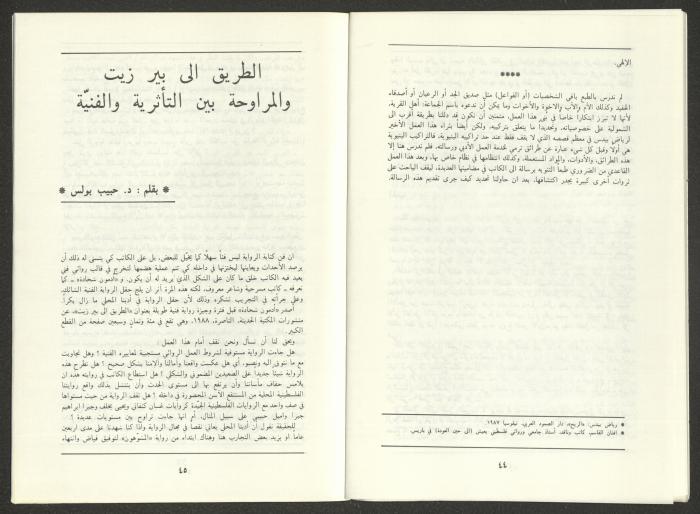 الإلهي.
****
لم ندرس بالطبع باقي الشخصيات (أو الفواعل) مثل صديق الجد أو الرعيان أو أصدقاء
الحفيد وكذلك الأم والأب والاخوة والأخوات وما يمكن أن ندعوه باسم الجماعة: أهل القرية،
لأنها لا تبرز ابتكارا خاصا في نور هذا العمل، متمنين أن نكون قد دللنا بطريقة أقرب الى
الشمولية على خصوصياته، وتحديدا ما يتعلق بتركيبه، ولكن أيضا بثراء هذا العمل الأخير
لرياض بيدس في معظم قصصه الذي لا يقف فقط عند حد تراكيبه البنيوية. فالتراكيب البنيوية
هي أولا وقبل كل شيء عبارة عن طرائق ترمي لخدمة العمل الأدبي ورسالته، فلم ندرس هنا إلا
هذه الطرائق، والأدوات، والمواد المستعملة، وكذلك انتظامها في نظام خاص بها، وبعد هذا العمل
القاعدي من الضروري طبعا التنويه برسالة الى الكاتب في مضامينها العديدة، ليقف الباحث على
ثروات أخرى كبيرة يجدر اكتشافها، بعد ان حاولنا تحديد كيف جرى تقديم هذه الرسالة.
* رياض بيدس: «الريح»، دار الصمود العربي، نيقوسيا ١٩٨٧.
* افنان القاسم، كاتب وناقد، أستاذ جامعي وروائي فلسطيني يعيش (الى حين العودة) في باريس.
٤٤
الطريق الى بير زيت
والمراوحة بين التأثرية والفنيّة
* بقلم : د. حبيب بولس *
ان فن كتابة الرواية ليس فناً سهلًا كما يخيّل للبعض، بل على الكاتب كي يتسنى له ذلك أن
يرصد الأحداث ويعاينها ليختزنها في داخله كي تتم عملية هضمها لتخرج في قالب روائي فني
يعيد فيه الكاتب خلق ما كان على الشكل الذي يريد له أن يكون. و«أدمون شحادة» ـ كما
نعرفه ـ كاتب مسرحية وشاعر معروف، لكنه هذه المرة آثر ان يلج حقل الرواية الفنية الشائك.
وعلى جرأته في التجريب نشكره وذلك لأن حقل الرواية في أدبنا المحلي ما زال بكراً.
أصدر «أدمون شحادة» قبل فترة وجيزة رواية فنية طويلة بعنوان «الطريق الى بير زيت»، عن
منشورات المكتبة الحديثة، الناصرة، ١٩٨٨، وهي تقع في مئة وثمانٍ وسبعين صفحة من القطع
الكبير.
ويحق لنا أن نسأل ونحن نقف أمام هذا العمل :
هل جاءت الرواية مستوفية لشروط العمل الروائي مستجيبة لمعاييره الفنية ؟ وهل تجاوبت
مع ما نتوق اليه ونصبو، أي هل عكست واقعنا وآمالنا وآلامنا بشكل صحيح ؟ هل تطرح هذه
الرواية شيئا جديداً على الصعيدين المضموني والشكلي ؟ هل استطاع الكاتب في روايته هذه ان
يلامس حفاف مأساتنا وأن يرتفع بها الى مستوى الحدث وأن ينتشل بذلك واقع روايتنا
الفلسطينية المحلية من المستنقع الآسن المحصورة في داخله ؟ هل تقف الرواية من حيث مستواها
في صف واحد مع الروايات الفلسطينية الجيّدة كروايات غسان كنفاني ويحيى يخلف وجبرا ابراهيم
جبرا واميل حبيبي على سبيل المثال، أم انها جاءت تراوح بين مستويات عديدة ؟
للحقيقة نقول أن أدبنا المحلي يعاني نقصا في مجال الرواية وإذا كنا شهدنا على مدى اربعين
عاما او يزيد بعض التجارب هنا وهناك ابتداء من رواية «المشوهون» لتوفيق فياض وانتهاء
٤٥